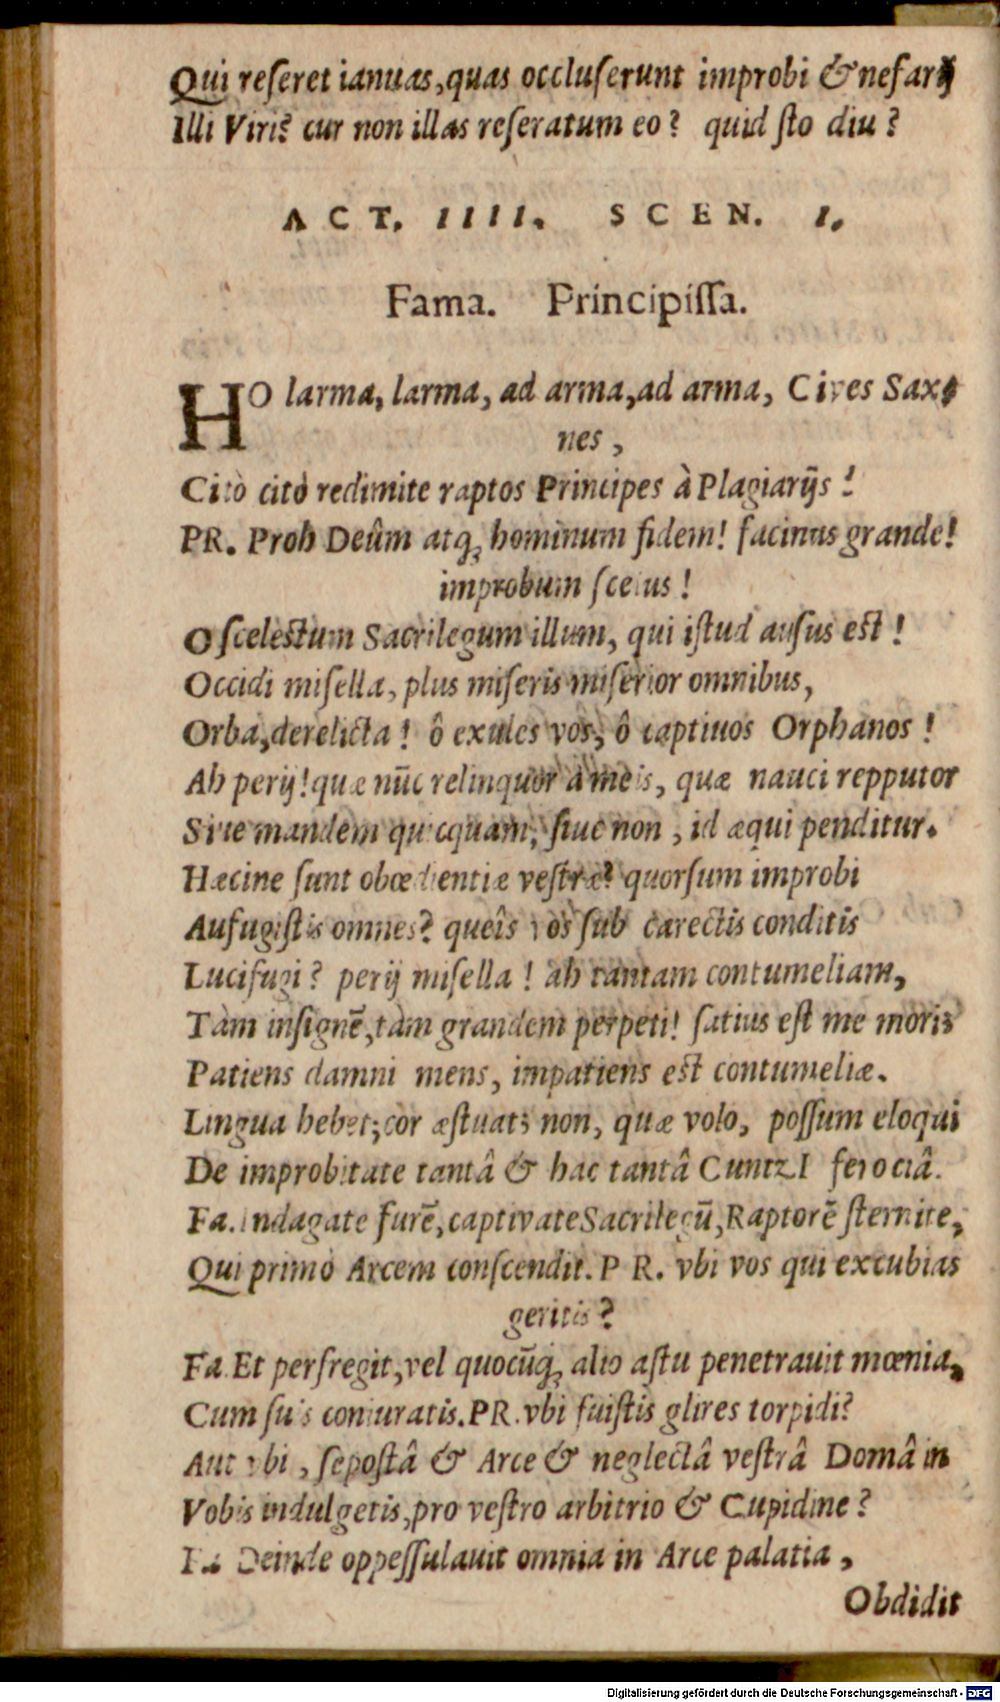 Qui reseret ianuas, quas occluserunt improbi & nefarij
Illi Viri? cur non illas reseratum eo? quid sto diu?
ACT. IIII. SCEN. I.
Fama. Principissa.
HO larma, larma, ad arma, ad arma, Cives Saxo-
nes,
Citò citò redimite raptos Principes à Plagiarijs!
PR. Proh Deûm atq; hominum fidem! facinus grande!
improbum scelus!
O scelestum Sacrilegum illum, qui istud ausus est!
Occidi misella, plus miseris miserior omnibus,
Orba, derelicta! ô exules vos, ô captiuos Orphanos!
Ah perij! quæ nūc relinquor à meis, quæ nauci repputor
Siue mandem quicquam, siue non, id æqui penditur.
Hæcine sunt obœdientiæ vestræ? quorsum improbi
Aufugistis omnes? queîs vos sub carectis conditis
Lucifugi? perij misella! ah tantam contumeliam,
Tàm insignē, tàm grandem perpeti! satius est me mori:
Patiens damni mens, impatiens est contumeliæ.
Lingua hebet; cor æstuat; non, quæ volo, possum eloqui
De improbitate tantâ & hac tantâ CuntzI ferociâ.
Fa. Indagate furē, captivate Sacrilegū, Raptorē sternite,
Qui primò Arcem conscendit. PR. vbi vos qui excubias
geritis?
Fa. Et perfregit, vel quocūq; alio astu penetrauit mœnia,
Cum suis coniuratis. PR. vbi fuistis glires torpidi?
Aut vbi, sepostâ & Arce & neglectâ vestrâ Domâ in
Vobis indulgetis, pro vestro arbitrio & Cupidine?
Fa. Deinde oppessulauit omnia in Arce palatia,
Obdidit
Digitalisierung gefördert durch die Deutsche Forschungsgemeinschaft - DFG